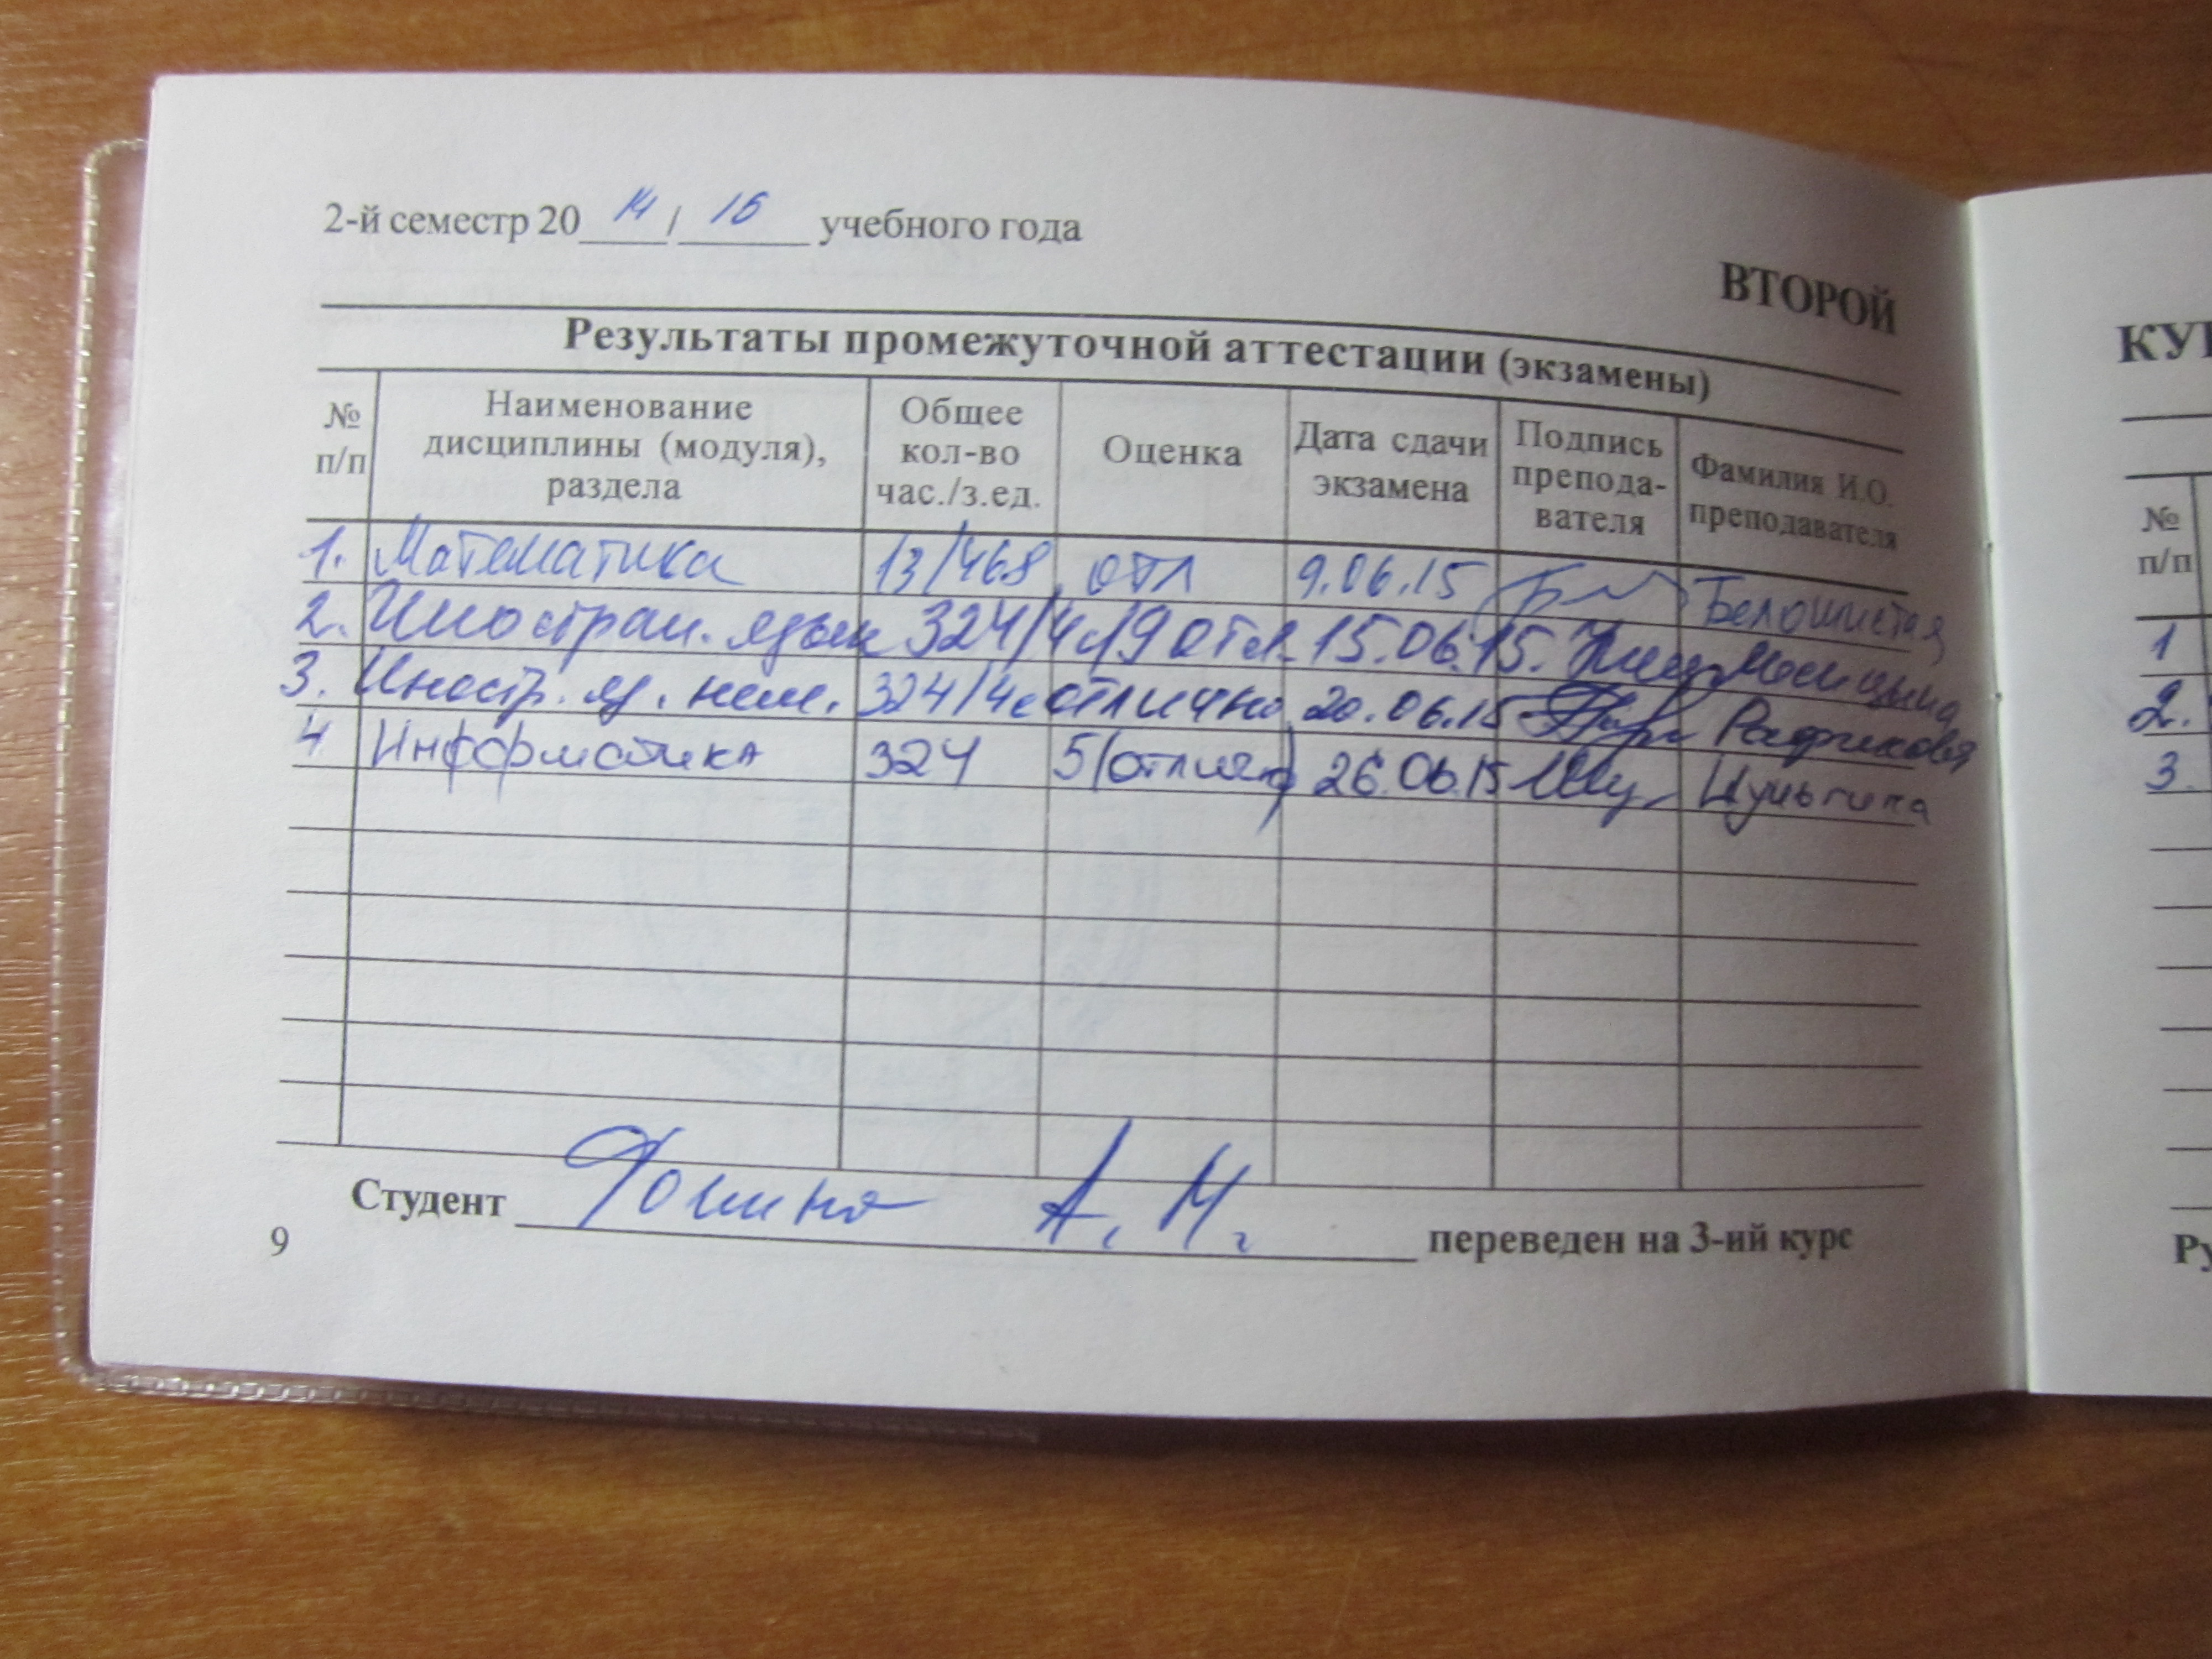 2-й семестр 20 14 / 15 учебного года
ВТОРОЙ
Результаты промежуточной аттестации (экзамены)
№ п/п Наименование дисциплины (модуля), раздела Общее кол-во час./з.ед. Оценка Дата сдачи экзамена Подпись препода-вателя Фамилия И.О. преподавателя
1. Математика 13/468 отл 9.06.15 Белошистая
2. Иностран. язык 324/ отл. 15.06.15.
3. Иностр. яз. нем. 324/4 отлично 20.06.15 Рафикова
4 Информатика 324 5(отлично) 26.06.15
Студент Фомина А. М. переведен на 3-ий курс
9
№
п/п
1
2.
3.